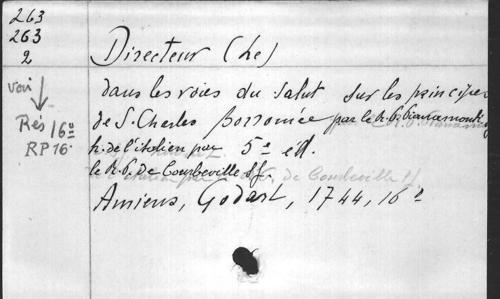 263
263
2
voir
Rés 16º
RP 16.
Directeur (Le)
dans les voies du Salut sur les principes
de S. Charles Borromée par le R. P. Pinamonti
tr. de l'italien par 5e ed.
le R. P. De Courbeville S.J.
Amiens, Godart, 1744, 16º